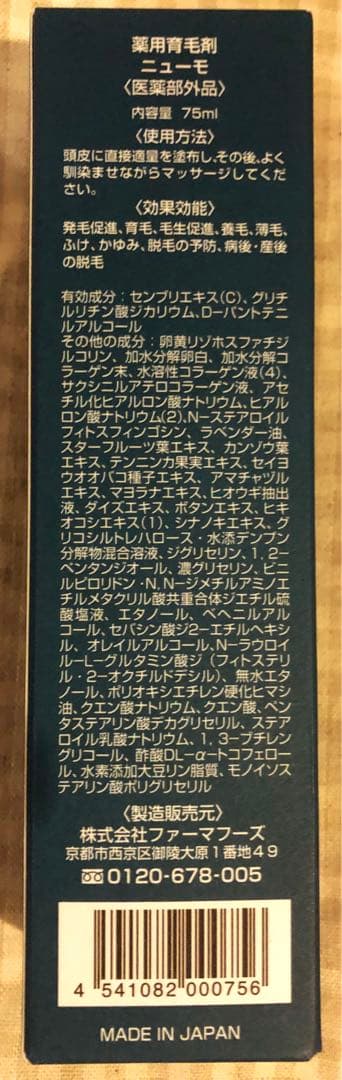 薬用育毛剤
ニューモ
〈医薬部外品〉
内容量 75ml
〈使用方法〉
頭皮に直接適量を塗布し、その後、よく
馴染ませながらマッサージしてくだ
さい。
〈効果効能〉
発毛促進、育毛、毛生促進、養毛、薄毛、
ふけ、かゆみ、脱毛の予防、病後・産後
の脱毛
有効成分：センブリエキス(C)、グリチ
ルリチン酸ジカリウム、D-パントテニ
ルアルコール
その他の成分：卵黄リゾホスファチジ
ルコリン、加水分解卵白、加水分解コ
ラーゲン末、水溶性コラーゲン液(4)、
サクシニルアテロコラーゲン液、アセ
チル化ヒアルロン酸ナトリウム、ヒアル
ロン酸ナトリウム(2)、N-ステアロイル
フィトスフィンゴシン、ラベンダー油、
スターフルーツ葉エキス、カンゾウ葉
エキス、テンニンカ果実エキス、セイヨ
ウオオバコ種子エキス、アマチャヅル
エキス、マヨラナエキス、ヒオウギ抽出
液、ダイズエキス、ボタンエキス、ヒキ
オコシエキス(1)、シナノキエキス、グ
リコシルトレハロース・水添デンプン
分解物混合溶液、ジグリセリン、1,2-
ペンタンジオール、濃グリセリン、ビニ
ルピロリドン・N,N-ジメチルアミノエ
チルメタクリル酸共重合体ジエチル硫
酸塩液、エタノール、ベヘニルアル
コール、セバシン酸ジ2-エチルヘキシ
ル、オレイルアルコール、N-ラウロイ
ル-L-グルタミン酸ジ(フィトステリ
ル・2-オクチルドデシル)、無水エタ
ノール、ポリオキシエチレン硬化ヒマシ
油、クエン酸ナトリウム、クエン酸、ペン
タステアリン酸デカグリセリル、ステア
ロイル乳酸ナトリウム、1,3-ブチレン
グリコール、酢酸DL-α-トコフェロー
ル、水素添加大豆リン脂質、モノインス
テアリン酸ポリグリセリル
〈製造販売元〉
株式会社ファーマフーズ
京都市西京区御陵大原1番地49
0120-678-005
4 541082 000756
MADE IN JAPAN